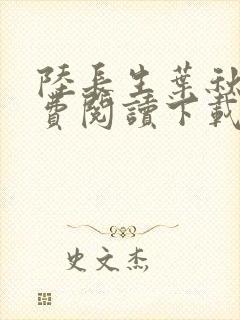 陸長生葉秋
費閱讀下載
史文杰